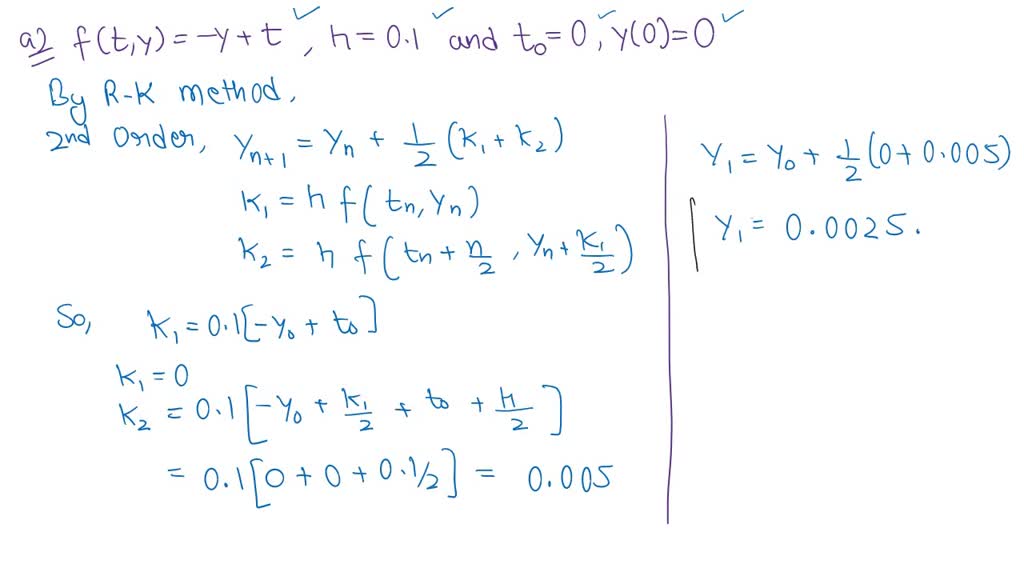 a2 f(t,y) = -y + t , h = 0.1 and t₀ = 0, y(0) = 0
By R-K method,
2nd order, Yₙ₊₁ = Yₙ + 1/2 (K₁ + K₂)
K₁ = h f(tₙ, Yₙ)
K₂ = h f(tₙ + h/2 , Yₙ + K₁/2)
So, K₁ = 0.1[-Y₀ + t₀]
K₁ = 0
K₂ = 0.1[-Y₀ + K₁/2 + t₀ + h/2]
= 0.1[0 + 0 + 0.1/2] = 0.005
Y₁ = Y₀ + 1/2 (0 + 0.005)
Y₁ = 0.0025.